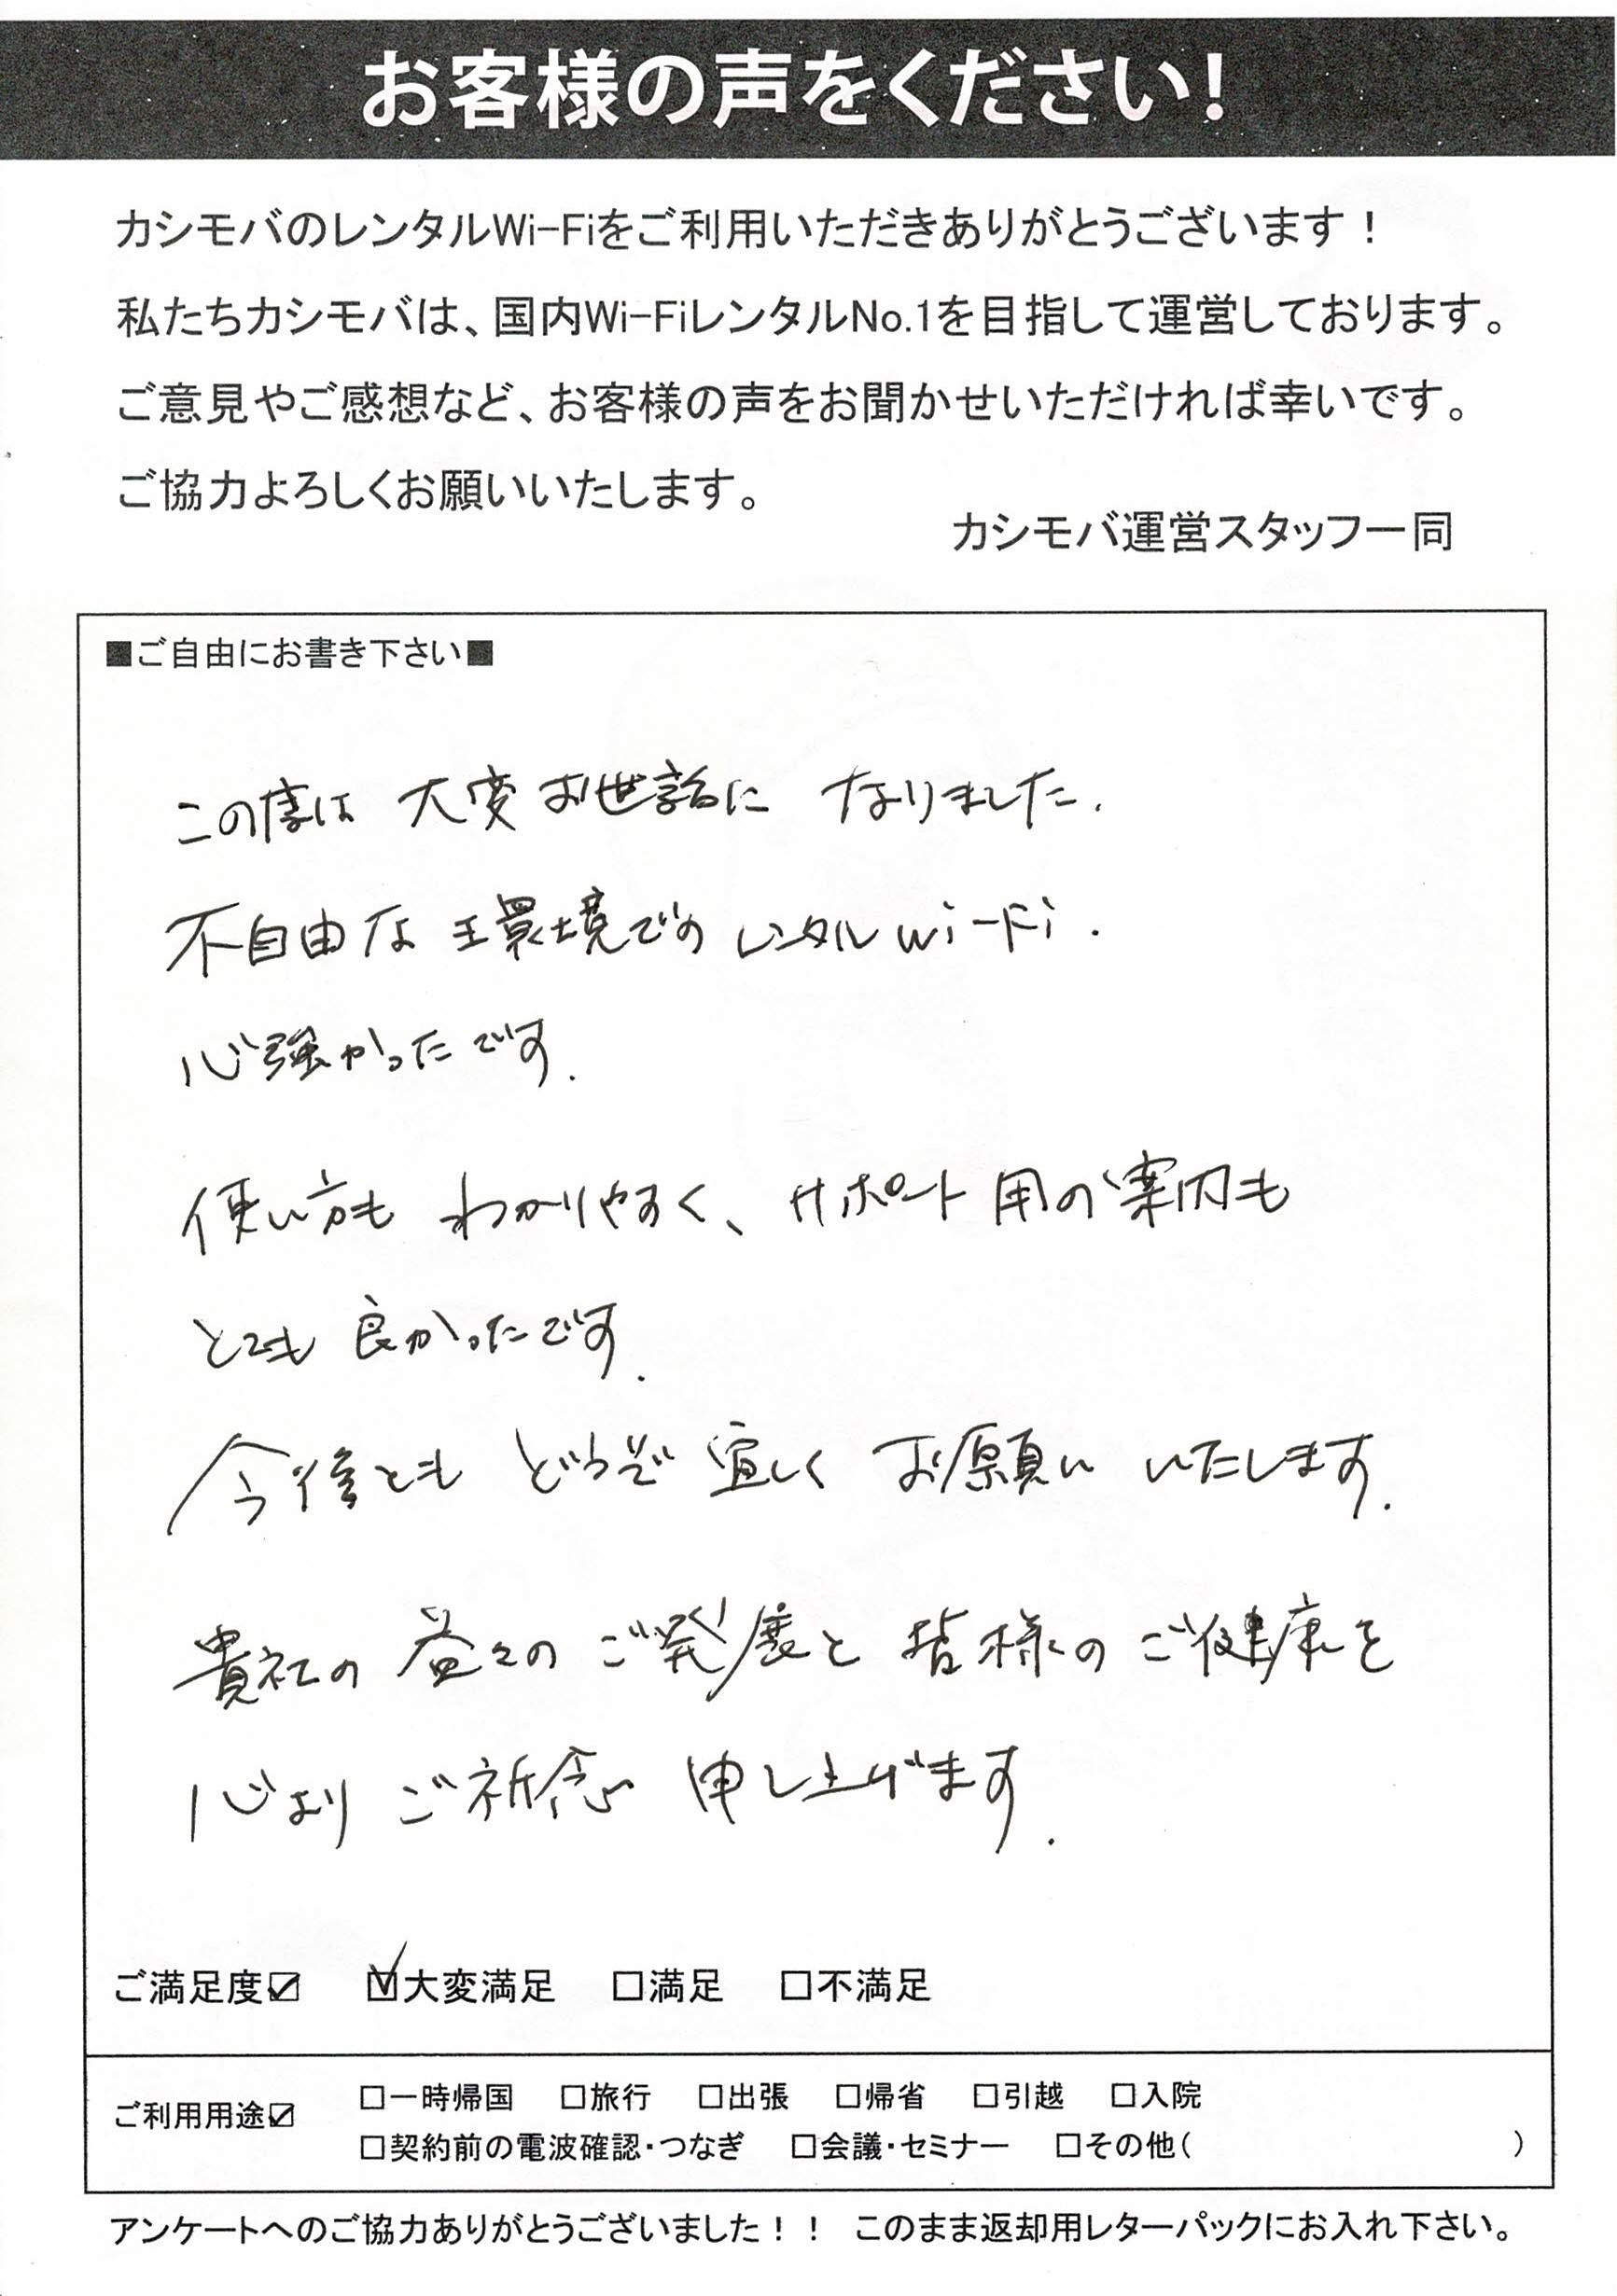 お客様の声をください!
カシモバのレンタルWi-Fiをご利用いただきありがとうございます！
私たちカシモバは、国内Wi-FiレンタルNo.1を目指して運営しております。
ご意見やご感想など、お客様の声をお聞かせいただければ幸いです。
ご協力よろしくお願いいたします。
カシモバ運営スタッフ一同
■ご自由にお書き下さい■
この度は 大変お世話に なりました.
不自由な 環境での レンタルwi-Fi.
心強かったです.
使い方も わかりやすく、サポート用の案内も
とても 良かったです.
今後とも どうぞ 宜しく お願い いたします.
貴社の 益々の ご発展と 皆様の ご健康を
心より ご祈念 申し上げます.
ご満足度☑ ☑大変満足 □満足 □不満足
ご利用用途☑ □一時帰国 □旅行 □出張 □帰省 □引越 □入院
□契約前の電波確認・つなぎ □会議・セミナー □その他( )
アンケートへのご協力ありがとうございました！！ このまま返却用レターパックにお入れ下さい。